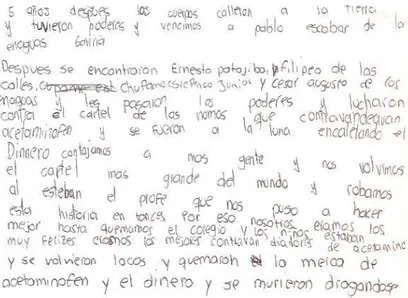 5 años despues los cuerpos calleron a la tierra
y tuvieron poderes y vencimos a pablo escobar de la
enaguas Gaviria
Despues se encontraron Ernesto patajiba, pfilipeo de las
calles, chupamecsiePaco Junior y cesar augusto de los
enaguas y les pasaron los poderes y lucharon
contra el cartel de las nomos que contravandeavan
acetaminofen y se fueron a la luna encaletando el
Dinnero contajamos a mas gente y nos volvimos
el cartel mas grande del mundo y robamos
al esteban el profe que nos puso a hacer
esta historia en tonces Por eso nosotros eramos los
mejor hasta quemamos el colegio y los niños estaban
muy ferizes eramos los mejores contravan diadores de acetamino
y se volvieron locos y quemaron la merca de
acetominofen y el dinero y se murieron drogandose